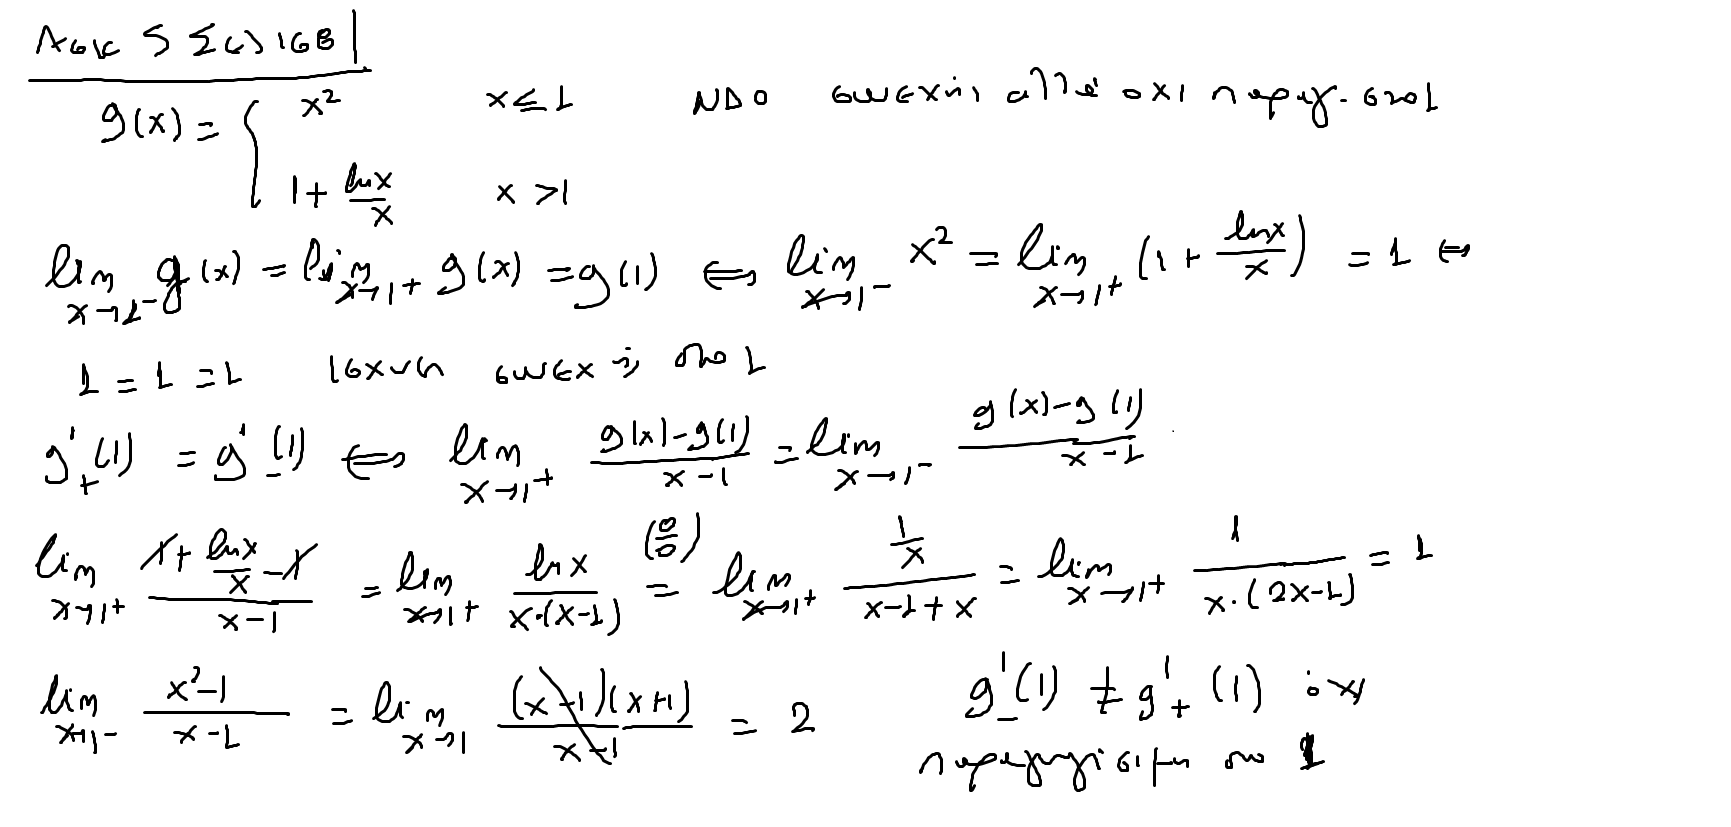 Ασκ 5 Σελ 168
g(x) = { x² x ≤ 1 ΝΔΟ συνεχής αλλά όχι παραγ. στο 1
1 + lnx/x x > 1
lim x→1⁻ g(x) = lim x→1⁺ g(x) = g(1) ⇔ lim x→1⁻ x² = lim x→1⁺ (1 + lnx/x) = 1 ⇔
1 = 1 = 1 ισχύει συνεχής στο 1
g'₊(1) = g'₋(1) ⇔ lim x→1⁺ (g(x)-g(1))/(x-1) = lim x→1⁻ (g(x)-g(1))/(x-1)
lim x→1⁺ (1 + lnx/x - 1)/(x-1) = lim x→1⁺ lnx/(x·(x-1)) (0/0) = lim x→1⁺ (1/x)/(x-1+x) = lim x→1⁺ 1/(x·(2x-1)) = 1
lim x→1⁻ (x²-1)/(x-1) = lim x→1 (x-1)(x+1)/(x-1) = 2 g'₋(1) ≠ g'₊(1) όχι
παραγωγίσιμη στο 1